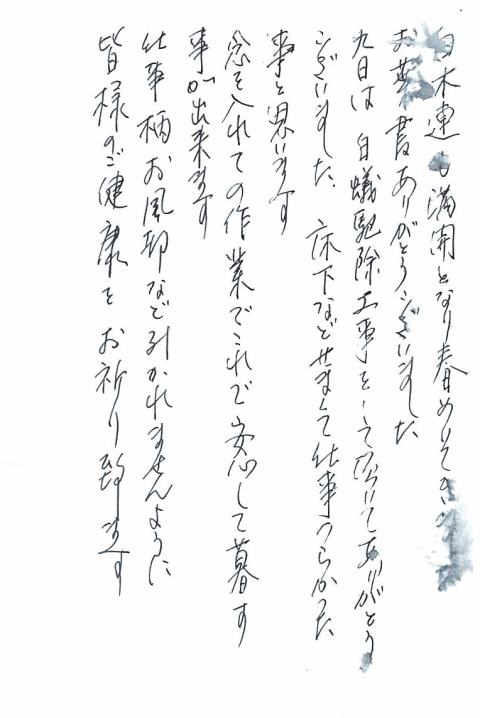 白木連も満開となり春めいてき
お葉書ありがとうございました
九日は白蟻駆除工事をして頂いてありがとう
ございました 床下などせまくて仕事つらかった
事と思います
念を入れての作業でこれで安心して暮す
事が出来ます
仕事柄お風邪など引かれませんように
皆様のご健康をお祈り致ます